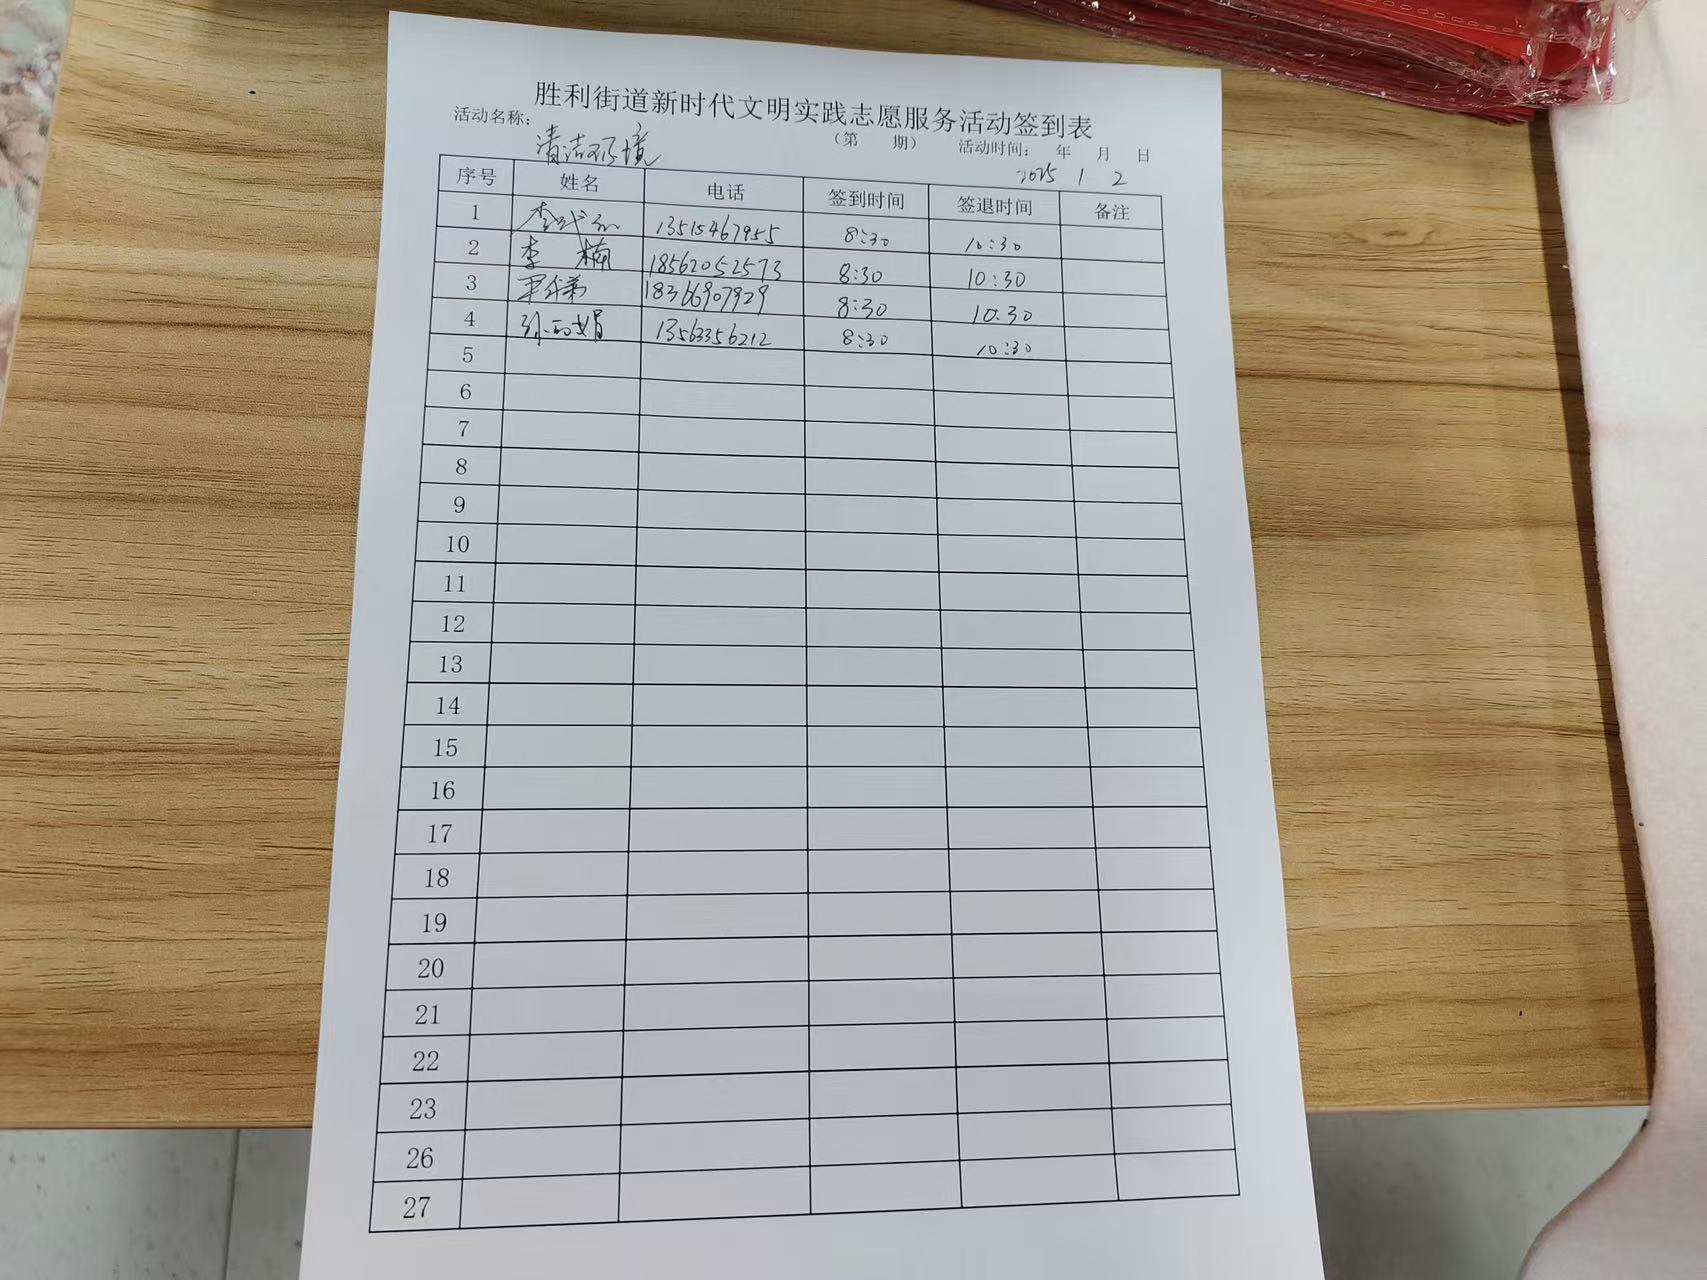 胜利街道新时代文明实践志愿服务活动签到表
活动名称： 清洁环境 （第 期） 活动时间： 2025 年 1 月 2 日
序号 姓名 电话 签到时间 签退时间 备注
1 13515467955 8:30 10:30
2 李楠 18562052573 8:30 10:30
3 18366907929 8:30 10:30
4 13563356212 8:30 10:30
5
6
7
8
9
10
11
12
13
14
15
16
17
18
19
20
21
22
23
26
27